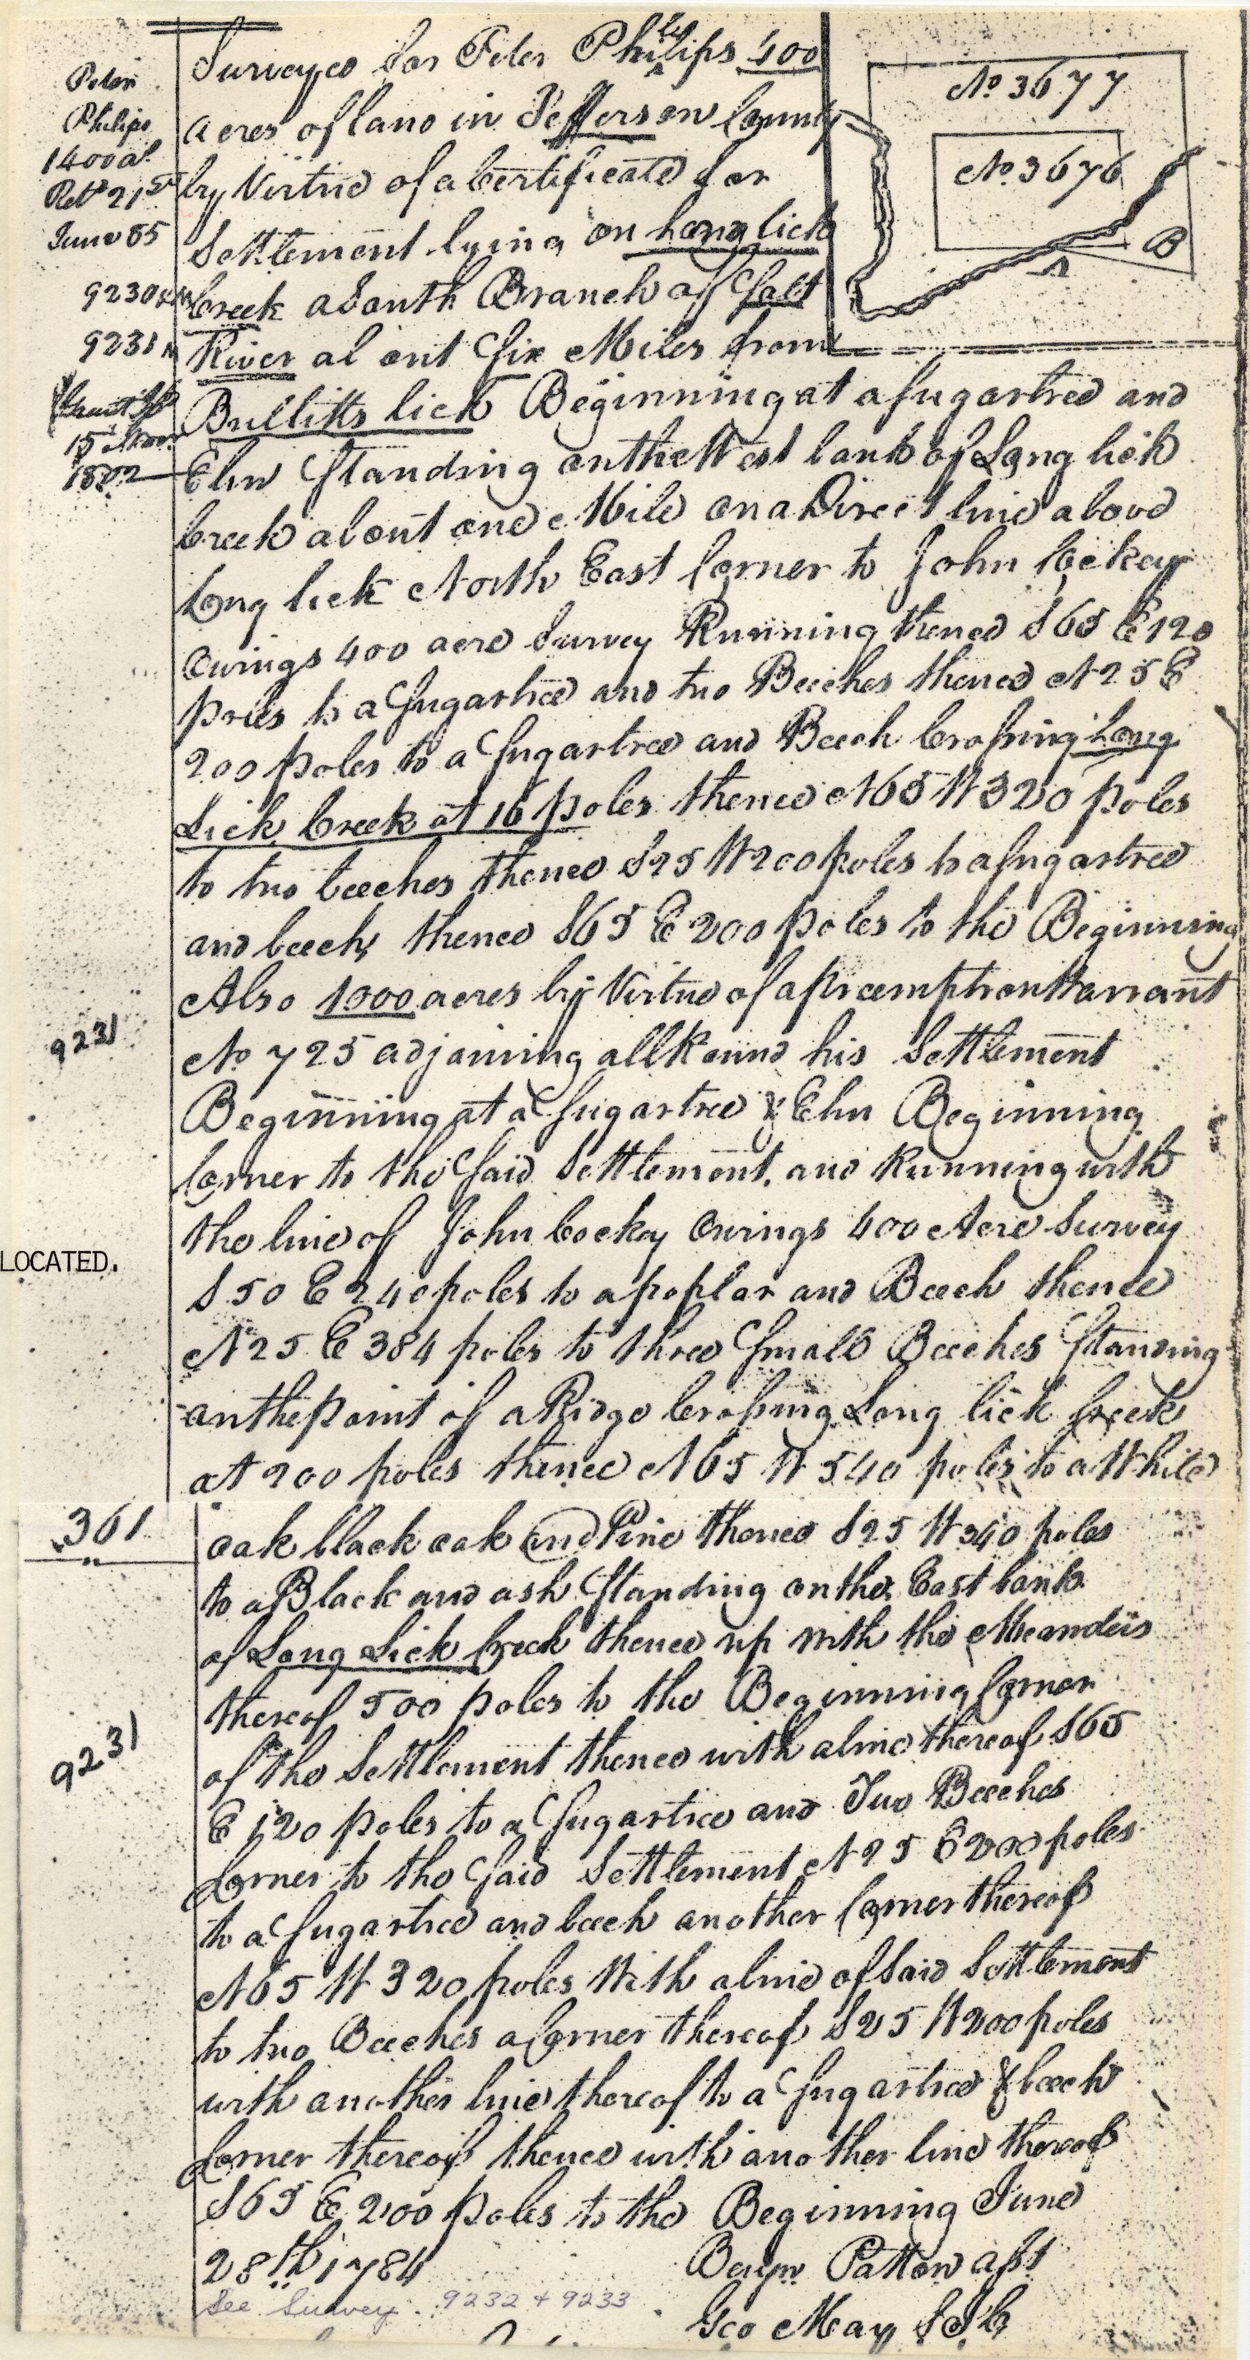 Peter
Philips
1400 as.
Retd 21st
June 85
9230 &
9231
Grant Isd
15 Novr
1802
Surveyed for Peter Philips 400
acres of land in Jefferson County
by Virtue of a Certificate for
Settlement lying on Long lick
Creek a South Branch of Salt
River about Six Miles from
Bullitts lick Beginning at a Sugartree and
Elm Standing on the West bank of Long lick
Creek about one Mile on a Direct line above
Long lick North East Corner to John Cockey
Owings 400 acre Survey Running thence S 65 E 120
poles to a Sugartree and two Beeches thence N 25 E
200 poles to a Sugartree and Beech Crossing Long
Lick Creek at 16 poles thence N 65 W 320 poles
to two beeches thence S 25 W 200 poles to a Sugartree
and beech, thence S 65 E 200 poles to the Beginning
Also 1000 acres by Virtue of a Preemption Warrant
No 725 adjoining all Round his Settlement
Beginning at a Sugartree & Elm Beginning
Corner to the Said Settlement, and Running with
the line of John Cockey Owings 400 Acre Survey
S 50 E 240 poles to a poplar and Beech thence
N 25 E 384 poles to three Small Beeches Standing
on the point of a Ridge Crossing Long lick Creek
at 200 poles thence N 65 W 540 poles to a White
oak black oak and Pine thence S 25 W 340 poles
to a Black and ash Standing on the East bank
of Long Lick Creek thence up with the Meanders
thereof 500 poles to the Beginning Corner
of the Settlement thence with a line thereof S 65
E 120 poles to a Sugartree and Two Beeches
Corner to the Said Settlement N 25 E 200 poles
to a Sugartree and beech another Corner thereof
N 65 W 320 poles With a line of Said Settlement
to two Beeches a Corner thereof S 25 W 200 poles
with another line thereof to a Sugartree & beech
Corner thereof thence with another line thereof
S 65 E 200 poles to the Beginning June
28th 1784
Benjn Patton asst
Geo May S J C
See Survey 9232 + 9233
No 3677
No 3676
B
9231
LOCATED.
361
9231